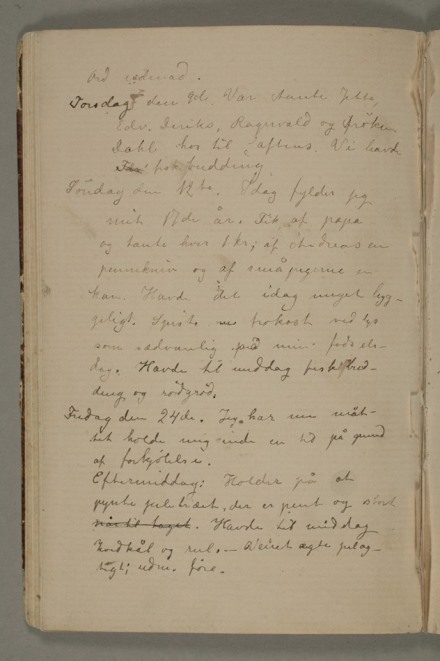 Torsdag den 9de. Var Tante Jette,
Edv. Diriks, Ragnvald og frøken
Dahl her til aftens. Vi havde
Søndag den 12te. Idag fylder jeg
mit 17de år. Fik af papa
og tante hver 1 kr; af Andreas en
penneknív og af småpigerne en
kam. Havde det idag meget hyg-
geligt. Spiste frokost ved lys
som sædvanlig på min fødsels-
dag. Havde til middag fiskebud-
ding og rødgrød.
Fredag den 24de. Jeg har nu måt-
tet holde mig inde en tid på grund
af forkjølelse.
Eftermiddag: Holder på at
pynte juletræet, der er pent og stort
når til taget. Havde til middag
hvidkål og rul. – Veiret ægte julag-
tigt; udm. føre.